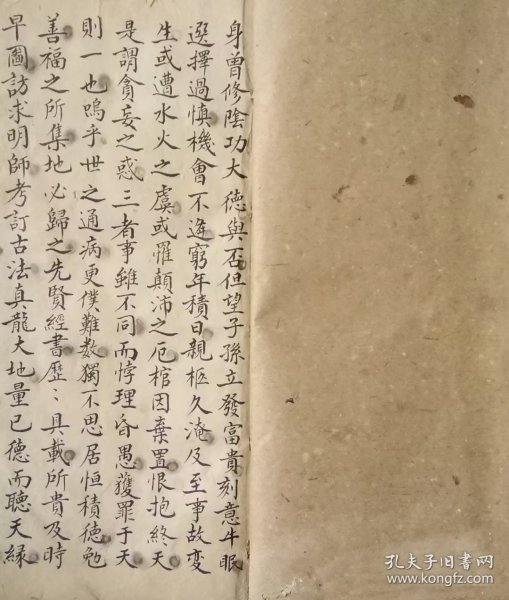 身曾修陰功大德與否但望子孫立發富貴刻意牛眠
選擇過慎機會不逢窮年積日親柩久淹及至事故变
生或遭水火之虞或罹顛沛之厄棺因棄置恨抱終天
是謂貪妄之惑三者事雖不同而悖理昏愚獲罪于天
則一也嗚乎世之通病更僕難数獨不思居恒積德勉
善福之所集地必歸之先賢經書歷〻具載所貴及時
早圖訪求明師考訂古法真龍大地量已德而聽天緣
孔夫子旧书网
www.kongfz.com